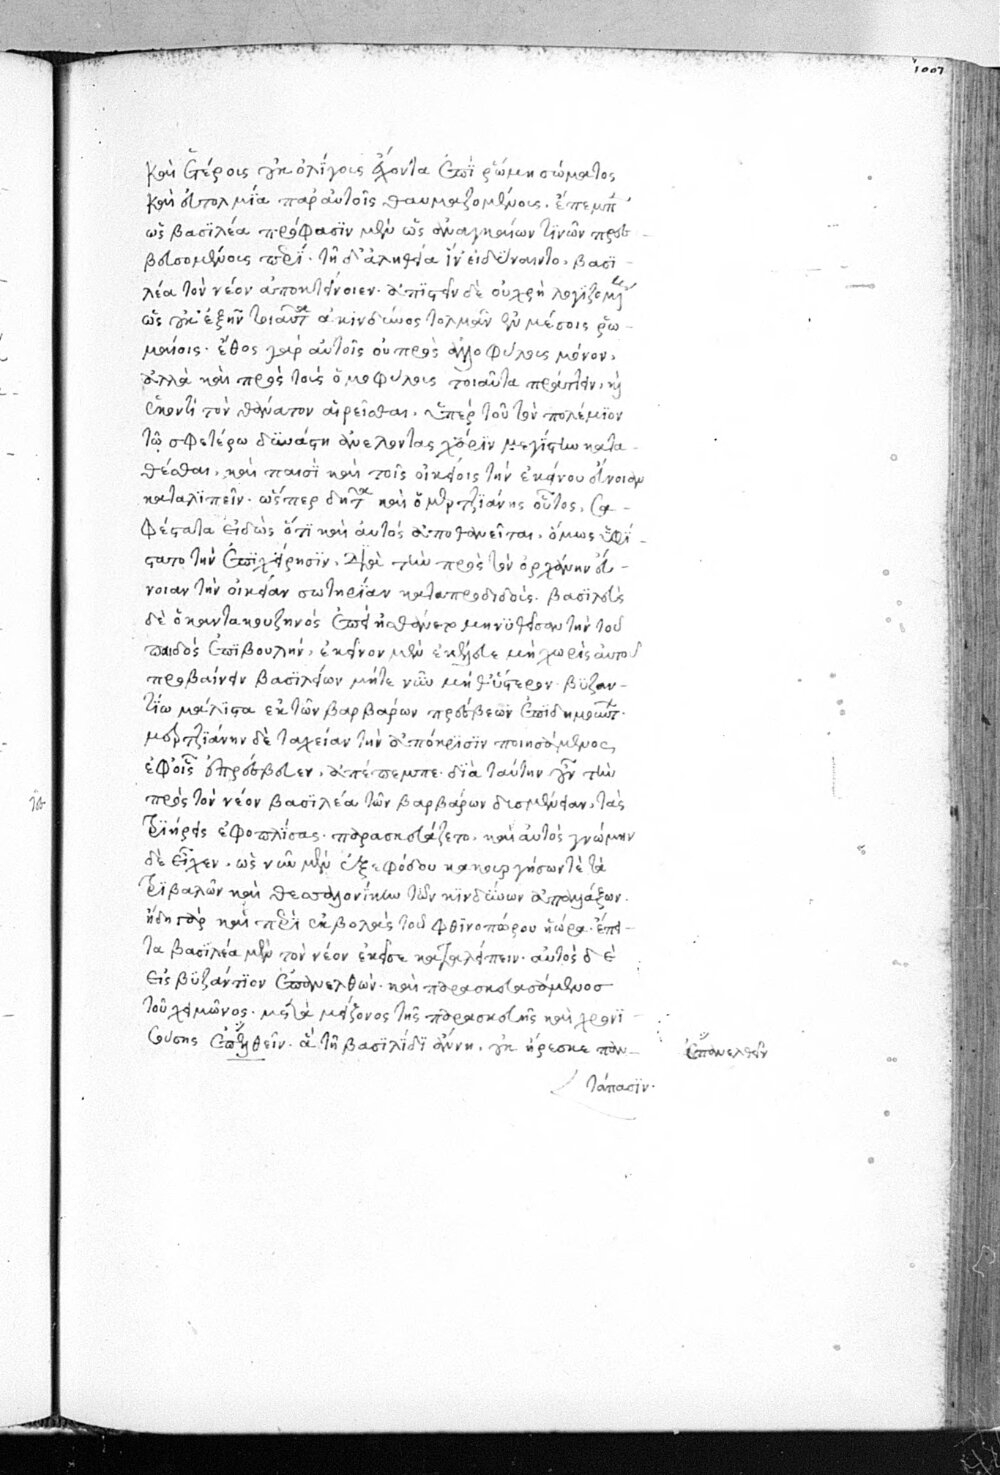 1007
καὶ ἑτέροις οὐκ ὀλίγοις ἔχοντα ἐπὶ ῥώμη σώματος
καὶ εὐτολμία παρ αὐτοῖς θαυμαζομένοις, ἔπεμπε
ὡς βασιλέα πρόφασιν μὲν ὡς ἀναγκαίων τινῶν πρεσ-
βευσομένοις περὶ· τῇ δ' ἀληθεία ἵν' εἰ δύναιντο, βασι-
λέα τὸν νέον ἀποκτείνοιεν· ἀπιστεῖν δὲ οὐ χρὴ λογιζομένους
ὡς οὐκ ἐξῆν τοιαῦτα ἀκινδύνως τολμᾶν ἐν μέσοις ῥω-
μαίοις· ἔθος γὰρ αὐτοῖς οὐ πρὸς ἀλλοφύλους μόνον,
ἀλλὰ καὶ πρὸς τοὺς ὁμοφύλους τοιαῦτα πράττειν, καὶ
ἑκοντὶ τὸν θάνατον αἱρεῖσθαι, ὑπὲρ τοῦ τὸν πολέμιον
τῷ σφετέρω δυνάστη ἀνελόντας χάριν μεγίστην κατα-
θέσθαι, καὶ παισὶ καὶ τοῖς οἰκείοις τὴν ἐκείνου εὔνοιαν
καταλιπεῖν· ὥσπερ δῆτα καὶ ὁ μουρτζιάνης οὗτος, σα-
φέστατα εἰδὼς ὅτι καὶ αὐτὸς ἀποθανεῖται, ὅμως ὑφί-
στατο τὴν ἐπιχείρησιν, διὰ τὴν πρὸς τὸν ὀρχάνην εὔ-
νοιαν τὴν οἰκείαν σωτηρίαν καταπροδιδούς. βασιλεὺς
δὲ ὁ καντακουζηνὸς ἐπεὶ ἠσθάνετο μηνυθεῖσαν τὴν τοῦ
παιδὸς ἐπιβουλήν, ἐκεῖνον μὲν ἐκέλευε μὴ χωρὶς αὐτοῦ
προβαίνειν βασιλείων μήτε νῦν μήθ' ὕστερον· βυζαν-
τίω μάλιστα ἐκ τῶν βαρβάρων πρέσβεων ἐπιδημούντων·
μουρτζιάνην δὲ ταχεῖαν τὴν ἀπόκρισιν ποιησάμενος,
ἐφ' οἷς ἐπρέσβευεν, ἀπέπεμπε· διὰ ταύτην οὖν τὴν
πρὸς τὸν νέον βασιλέα τῶν βαρβάρων δυσμένειαν, τὰς
τριήρεις ἐφοπλίσας· παρασκευάζετο, καὶ αὐτὸς γνώμην
δὲ εἶχεν, ὡς νῦν μὲν ἐξ ἐφόδου κακουργήσων τὲ τὰ
τριβαλῶν καὶ θεσσαλονίκην τῶν κινδύνων ἀπαλλάξων·
ἤδη γὰρ καὶ περὶ ἐκβολὰς τοῦ φθινοπώρου ἡ ὥρα· ἔπει-
τα βασιλέα μὲν τὸν νέον ἐκεῖσε καταλείπειν· αὐτὸς δὲ
εἰς βυζάντιον ἐπανελθών· καὶ παρασκευασάμενος
τοῦ χειμῶνος· μετὰ μείζονος τῆς παρασκευῆς καὶ χρονί-
ζούσης ἐπελθεῖν· ἃ τῇ βασιλίδι ἄννη, οὐκ ἤρεσκε παν-
ἐπανελθεῖν
τάπασιν·